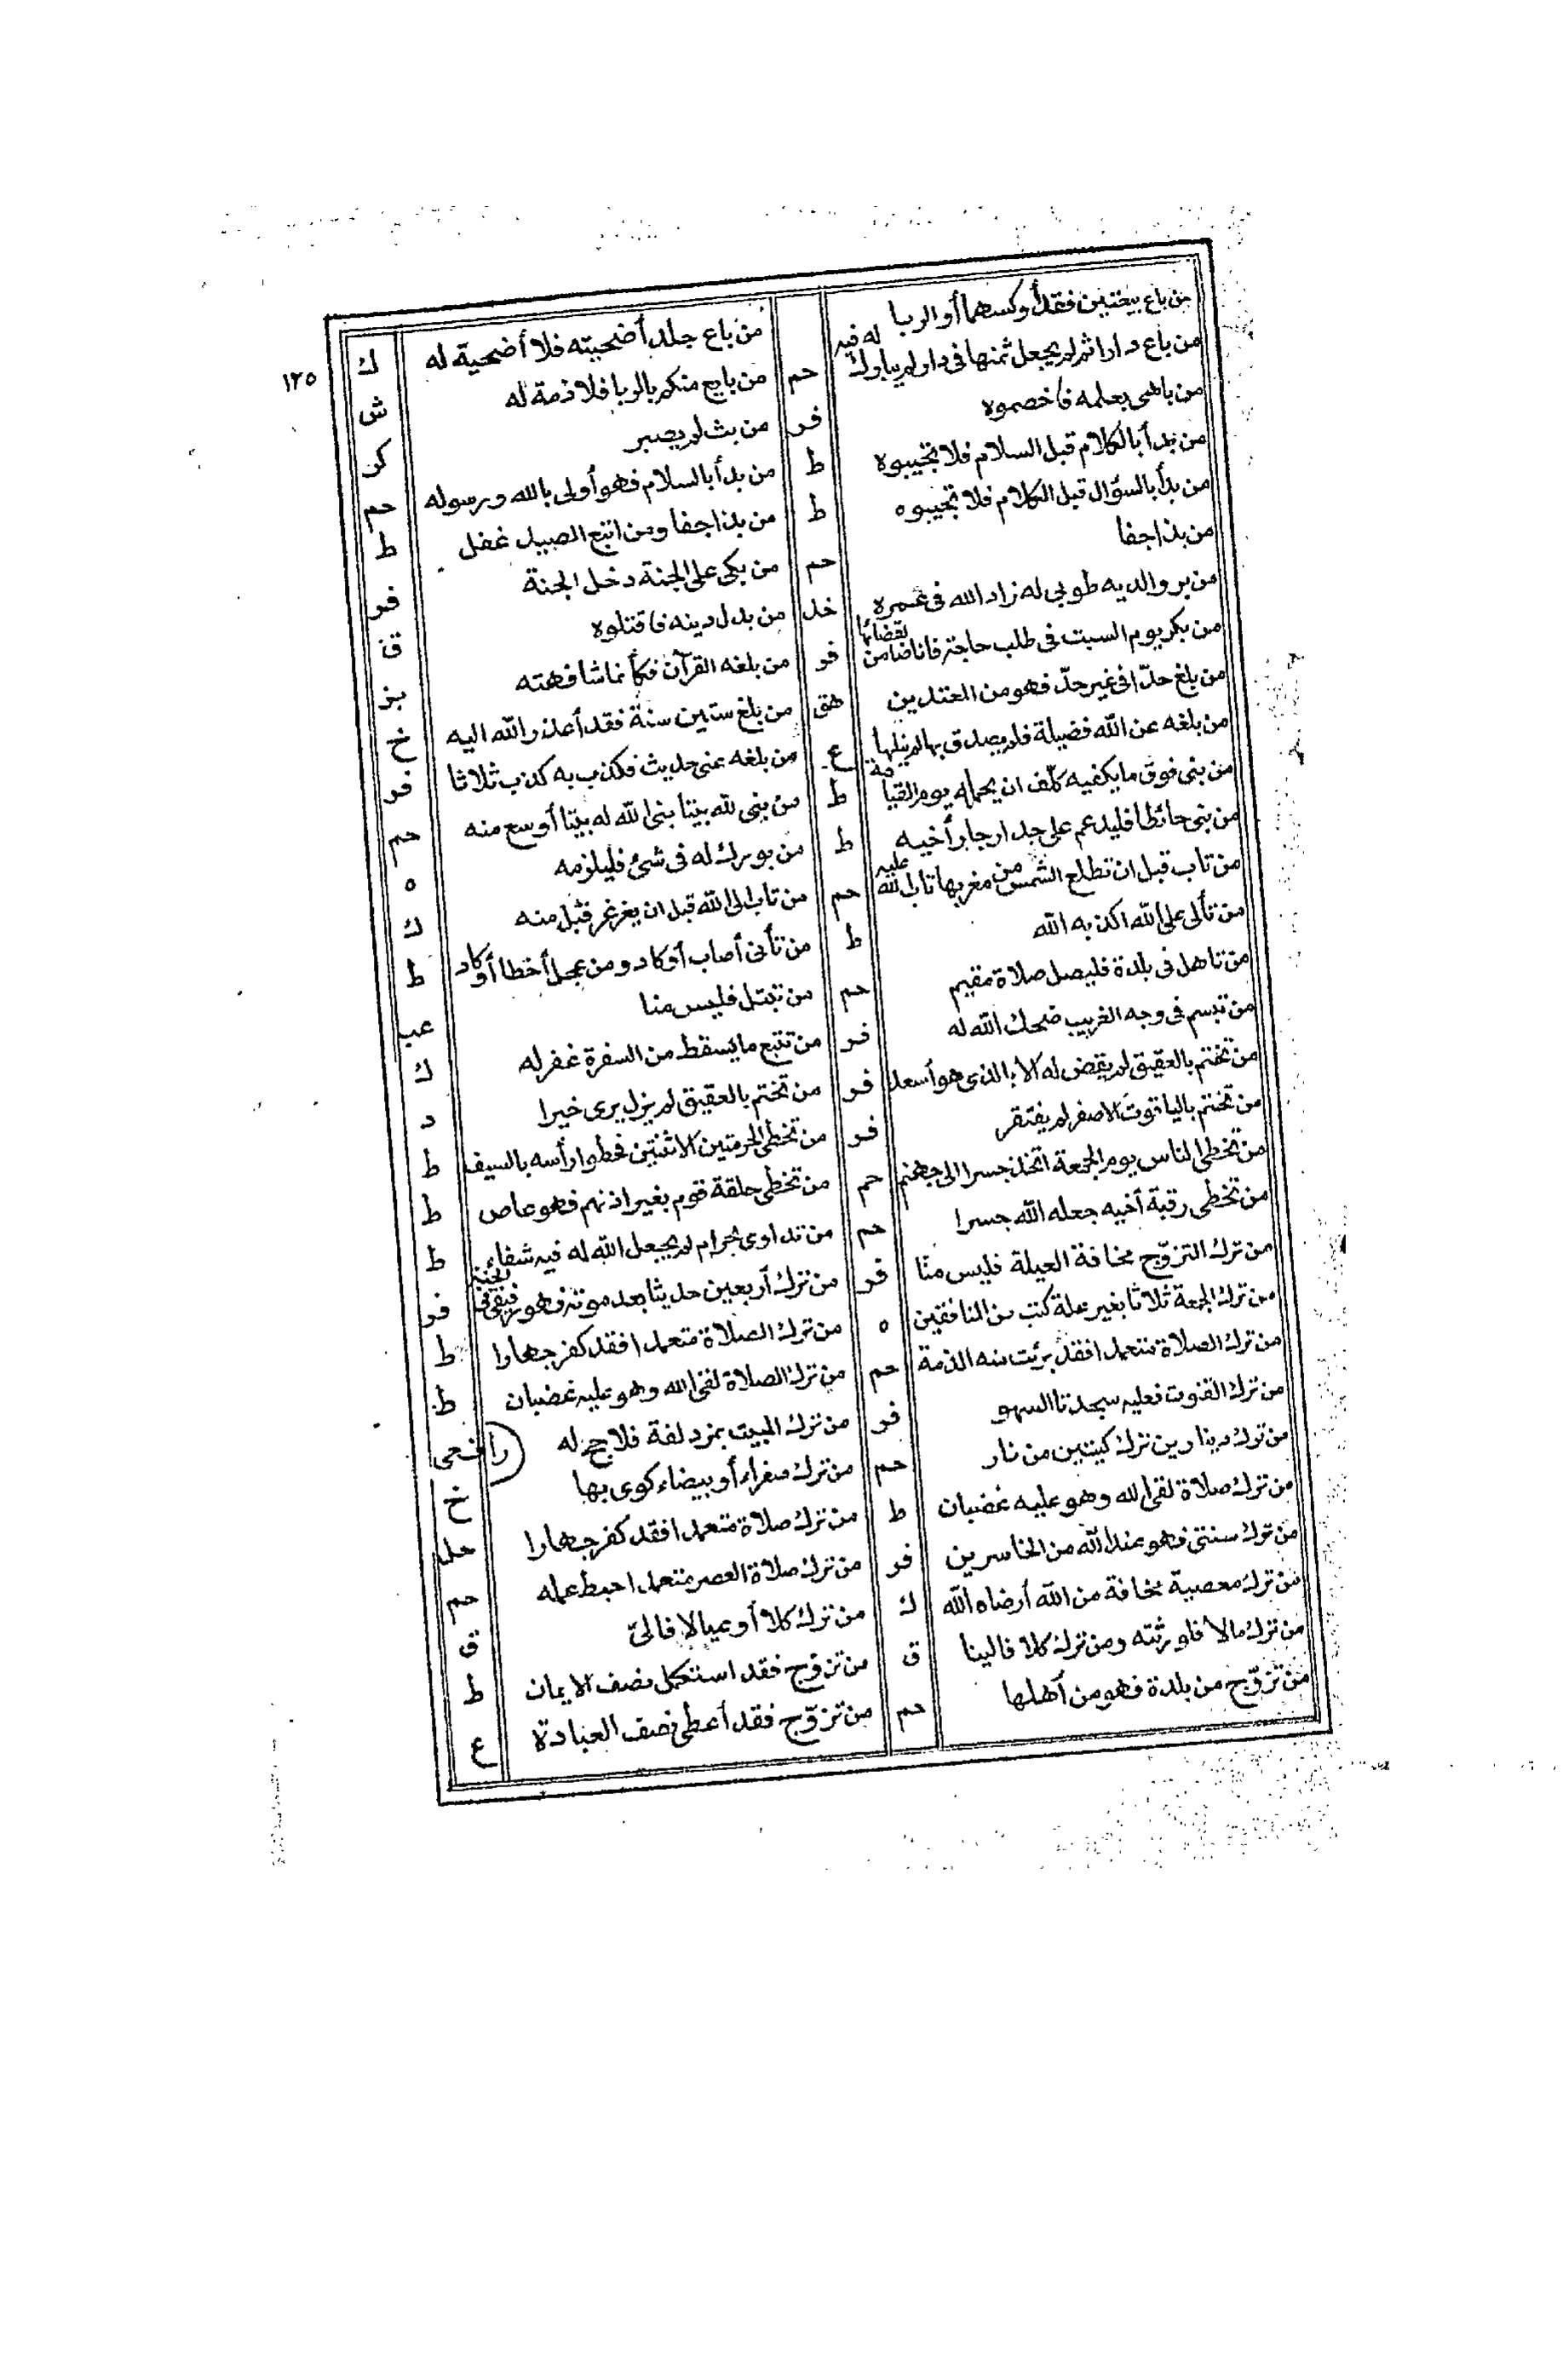 من باع بيعتين فقد أوكسهما أو الربا
من باع دارا ثم لم يجعل ثمنها في دار لم يبارك له فيه حم
من باهى بعلمه فاخصموه فر
من بدأ بالكلام قبل السلام فلا تجيبوه ط
من بدأ بالسؤال قبل الكلام فلا تجيبوه ط
من بدا جفا حم
من بر والديه طوبى له زاد الله في عمره خد
من بكر يوم السبت في طلب حاجته فانا ضامن لقضائها فر
من بلغ حدّا في غير حدّ فهو من المعتدين هق
من بلغه عن الله فضيلة فلم يصدق بها لم ينلها ع
من بنى فوق ما يكفيه كلّف ان يحمله يوم القيامة ط
من بنى حائطا فليدعم على جدار جار أخيه ط
من تاب قبل ان تطلع الشمس من مغربها تاب الله عليه حم
من تألى على الله اكذبه الله ط
من تاهل في بلدة فليصل صلاة مقيم حم
من تبسم في وجه الغريب ضحك الله له فر
من تختم بالعقيق لم يقض له الا بالذي هو أسعد فر
من تختم بالياقوت الاصفر لم يفتقر فر
من تخطى الناس يوم الجمعة اتخذ جسرا الى جهنم حم
من تخطى رقبة أخيه جعله الله جسرا حم
من ترك التزوّج مخافة العيلة فليس منّا فر
من ترك الجمعة ثلاثا بغير علة كتب من المنافقين ه
من ترك الصلاة متعمدا فقد برئت منه الذمة حم
من ترك القنوت فعليه سجدتا السهو فر
من ترك دينارين ترك كيتين من نار حم
من ترك صلاة لقى الله وهو عليه غضبان ط
من ترك سنتي فهو عند الله من الخاسرين فر
من ترك معصية مخافة من الله أرضاه الله ك
من ترك مالا فلورثته ومن ترك كلا فالينا ق
من تزوّج من بلدة فهو من أهلها حم
من باع جلد أضحيته فلا أضحية له ك
من بايع منكم بالربا فلا ذمة له ش
من بث لم يصبر كر
من بدأ بالسلام فهو أولى بالله ورسوله حم
من بدا جفا ومن اتبع الصيد غفل ط
من بكى على الجنة دخل الجنة فر
من بدل دينه فاقتلوه ق
من بلغه القرآن فكأنما شافهته بز
من بلغ ستين سنة فقد أعذر الله اليه خ
من بلغه عني حديث فكذب به كذب ثلاثا فر
من بنى لله بيتا بنى الله له بيتا أوسع منه حم
من بورك له في شئ فليلزمه ه
من تاب الى الله قبل ان يغرغر قبل منه ك
من تأنى أصاب أو كاد ومن عجل أخطا أو كاد ط
من تبتل فليس منا عب
من تتبع ما يسقط من السفرة غفر له ك
من تختم بالعقيق لم يزل يرى خيرا د
من تخطى الحرمتين الاثنتين فخطوا رأسه بالسيف ط
من تخطى حلقة قوم بغير اذنهم فهو عاص ط
من تداوى بحرام لم يجعل الله له فيه شفاء ط
من ترك أربعين حديثا بعد موته فهو رفيقي في الجنة فر
من ترك الصلاة متعمدا فقد كفر جهارا ط
من ترك الصلاة لقى الله وهو عليه غضبان ط
من ترك المبيت بمزدلفة فلا حج له رافعى
من ترك صفراء أو بيضاء كوى بها خ
من ترك صلاة متعمدا فقد كفر جهارا حل
من ترك صلاة العصر متعمدا احبط عمله حم
من ترك كلا أو عيالا فالىّ ق
من تزوّج فقد استكمل نصف الايمان ط
من تزوّج فقد أعطى نصف العبادة ع
١٢٥